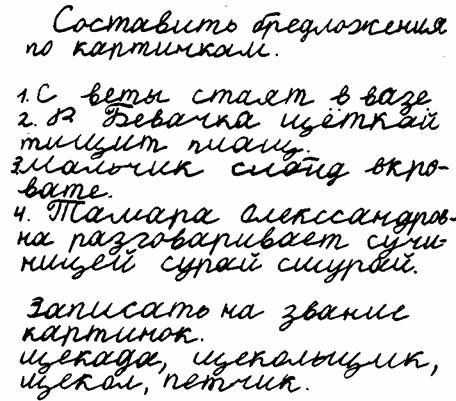 Составить бредложения
по картинкам.
1. С веты стаят в вазе
2. В Бевачка щёткай
тищит плащ.
3 мальчик слапд вкро-
вате.
4. Тамара Олекссандров-
на разговаривает сучи-
ницей сурай сшурай.
Записать на звание
картинок.
щекада, щекольщик,
щекол, петчик.